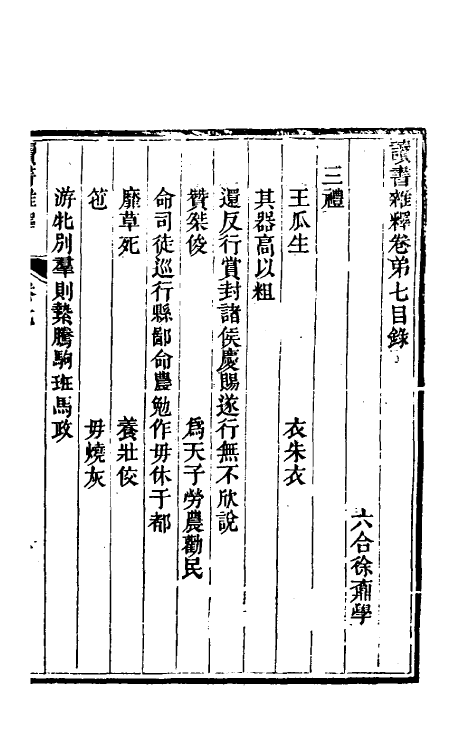 讀書雜釋卷弟七目錄
六合徐鼒學
三禮
王瓜生　衣朱衣
其器高以粗
還反行賞封諸侯慶賜遂行無不欣說
贊桀俊　爲天子勞農勸民
命司徒巡行縣鄙命農勉作毋休于都
靡草死　養壯佼
苞　毋燒灰
游牝別羣則縶騰駒班馬政